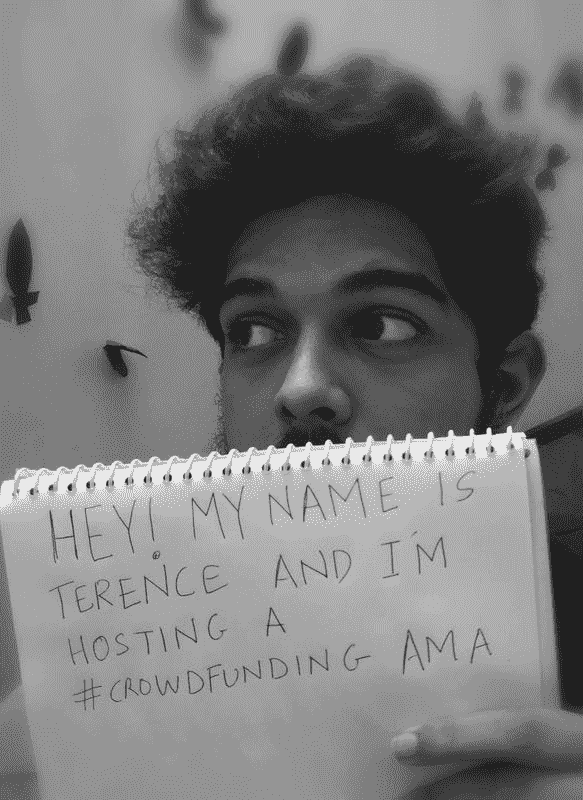 HEY! MY NAME IS
TERENCE AND I'M
HOSTING A
#CROWDFUNDING AMA